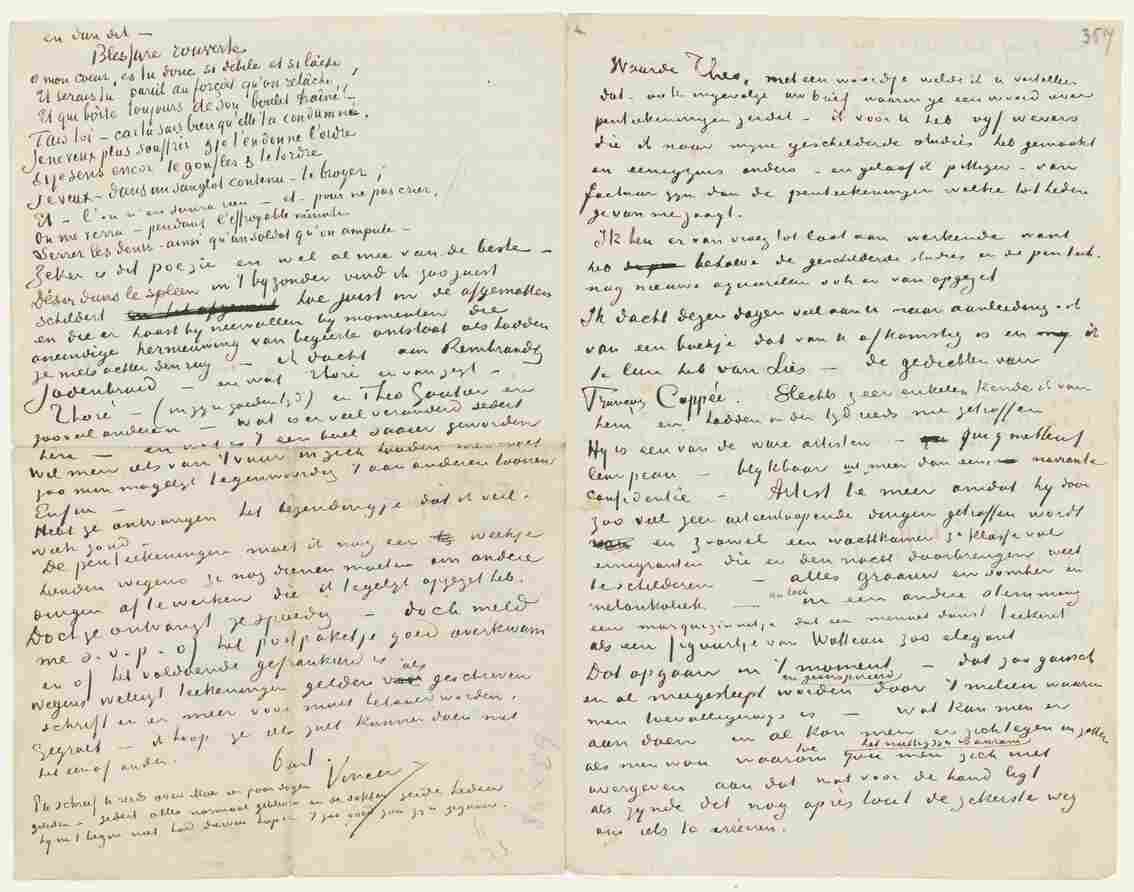 en dan dit —
Blessure rouverte
O mon coeur, es tu donc si débile et si lâche
Et serais tu pareil au forçat qu'on relâche,
Et qui boite toujours de son boulet traîné!
Tais toi — car tu sais bien qu'elle t'a condamné.
Je ne veux plus souffrir & je t'en donne l'ordre
Si je te sens encor te gonfler & te tordre
Je veux — dans un sanglot contenu — te broyer;
Et — l'on n'en saura rien — et — pour ne pas crier,
On me verra — pendant l'effroyable minute
Serrer les dents — ainsi qu'un soldat qu'on ampute —
Zeker is dit poezie en wel al mee van de beste —
Désir dans le spleen in 't byzonder vind ik zoo juist
schildert hoe juist in de afgematten
en die er haast by neervallen by momenten die
oneindige hernieuwing van begeerte ontstaat als hadden
ze niets achter den rug — ik dacht aan Rembrandts
Jodenbruid — en wat Thoré er van zegt —
Thoré — (in zyn goeden tyd) en Theo Gautier en
zooveel anderen — wat is er veel veranderd sedert
hen — en wat is 't een boel saaier geworden
Wil men iets van 't vuur in zich houden men moet
zoo min mogelyk tegenwoordig 't aan anderen toonen
Enfin —
Hebt ge ontvangen het bezendingje dat ik verl.
week zond —
De penteekeningen moet ik nog een weekje
houden wegens ze nog dienen moeten om andere
dingen af te werken die ik tegelyk opgezet heb.
Doch je ontvangt ze spoedig — doch meld
me s.v.p. of het postpakketje goed overkwam
en of het voldoende gefrankeerd is
wegens wellicht teekeningen gelden als geschreven
schrift en er meer voor moet betaald worden.
Gegroet — ik hoop ge iets zult kunnen doen met
het een of ander.
t.à.t.
Vincent
Ik schreef U reeds over Moe een paar dagen
geleden — sedert alles normaal gebleven en de dokter zeide heden
Waarde Theo, met een woordje wilde ik U vertellen
dat ook ingevolge uw brief waarin ge een woord over
penteekeningen zeidet — ik voor U heb vyf wevers
die ik naar myne geschilderde studies heb gemaakt
en eenigzins anders — en geloof ik pittiger — van
factuur zyn dan de penteekeningen welke tot heden
ge van me zaagt.
Ik ben er van vroeg tot laat aan werkende want
heb behalve de geschilderde studies en de penteek.
nog nieuwe aquarellen ook er van opgezet
Ik dacht dezer dagen veel aan U naar aanleiding ook
van een boekje dat van U afkomstig is en ik
te leen heb van Lies — de gedichten van
François Coppée. Slechts zeer enkelen kende ik van
hem en hadden in der tyd reeds me getroffen
Hy is een van de ware artisten — qui y mettent
leur peau — blykbaar uit meer dan eene navrante
confidentie — Artist te meer omdat hy door
zoo veel zeer uiteenloopende dingen getroffen wordt
en zoowel een wachtkamer 3e klasse vol
emigranten die er den nacht doorbrengen weet
te schilderen — alles graauw en somber en
melankoliek — en toch in een andere stemming
een markiezinnetje dat een menuet danst teekent
als een figuurtje van Watteau zoo elegant
Dat opgaan in 't moment — dat zoo gansch
en al meegesleept en geinspireerd worden door 't milieu waarin
men toevalligerwys is — wat kan men er
aan doen en al kon men er zich tegen in zetten
als men wou waartoe het nuttig zyn waarom zou men zich niet
overgeven aan dat wat voor de hand ligt
als zynde dit nog après tout de zekerste weg
om iets te creëeren.